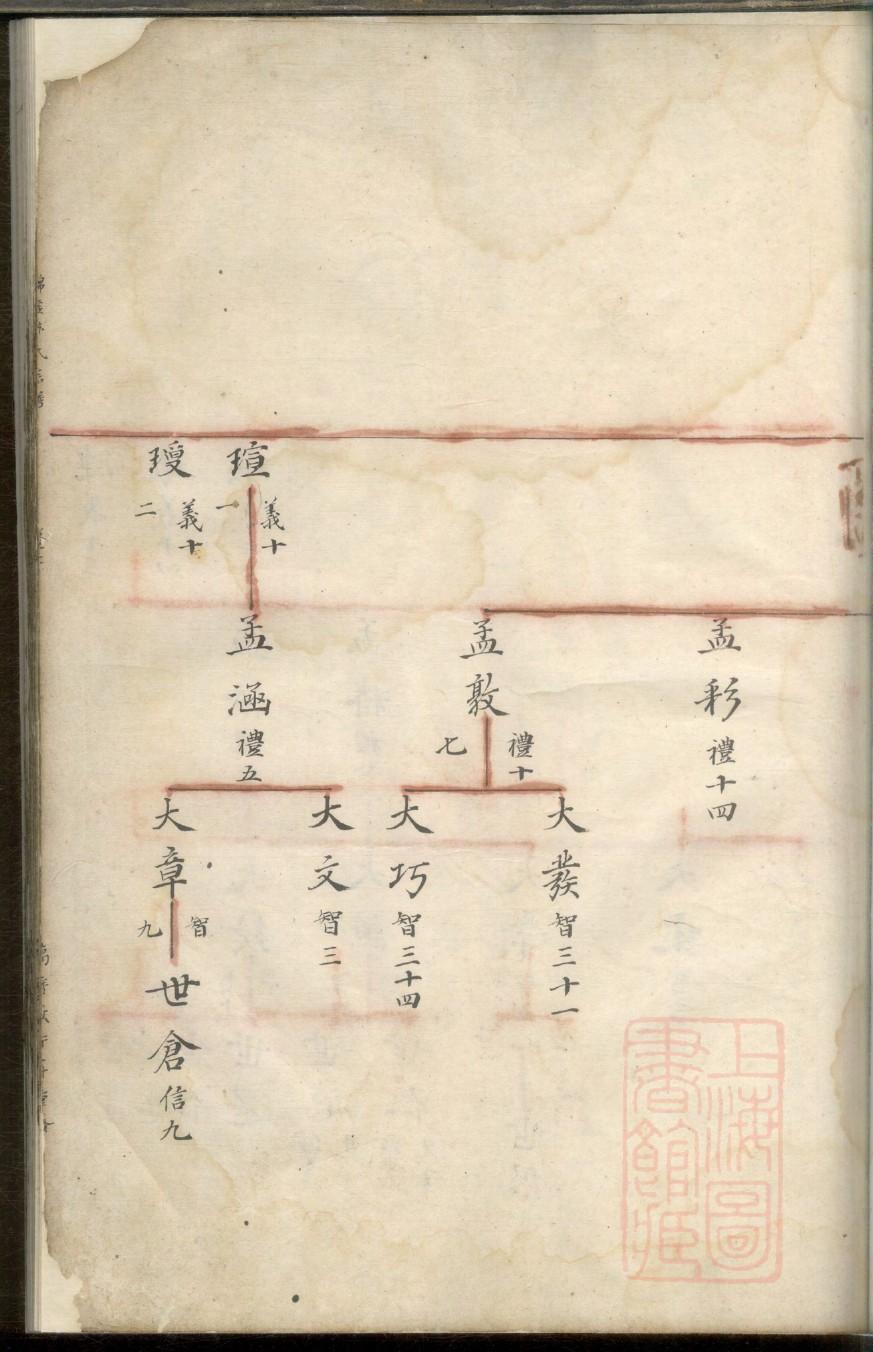 孟彩禮十四
孟敦禮十七
大發智三十一
大巧智三十四
瑄義十一
孟涵禮五
大文智三
大章智九
世倉信九
義十二
上海圖
書館藏